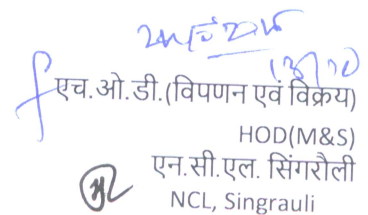 एच.ओ.डी.(विपणन एवं विक्रय)
HOD(M&S)
एन.सी.एल. सिंगरौली
NCL, Singrauli